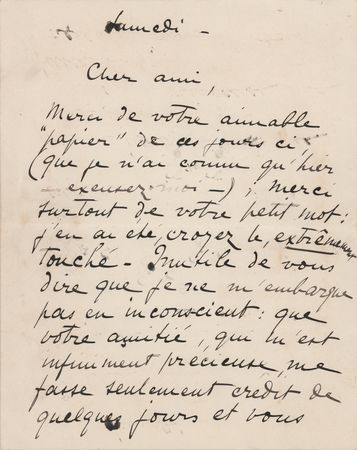 Samedi -
Cher ami,
Merci de votre aimable
"papier" de ces jours ci
(que je n'ai connu qu'hier
- excusez moi -), merci
surtout de votre petit mot:
j'en ai été, croyez le, extrêmement
touché - Inutile de vous
dire que je ne m'embarque
pas en inconscient: que
votre amitié, qui m'est
infiniment précieuse, me
fasse seulement crédit de
quelques jours et vous